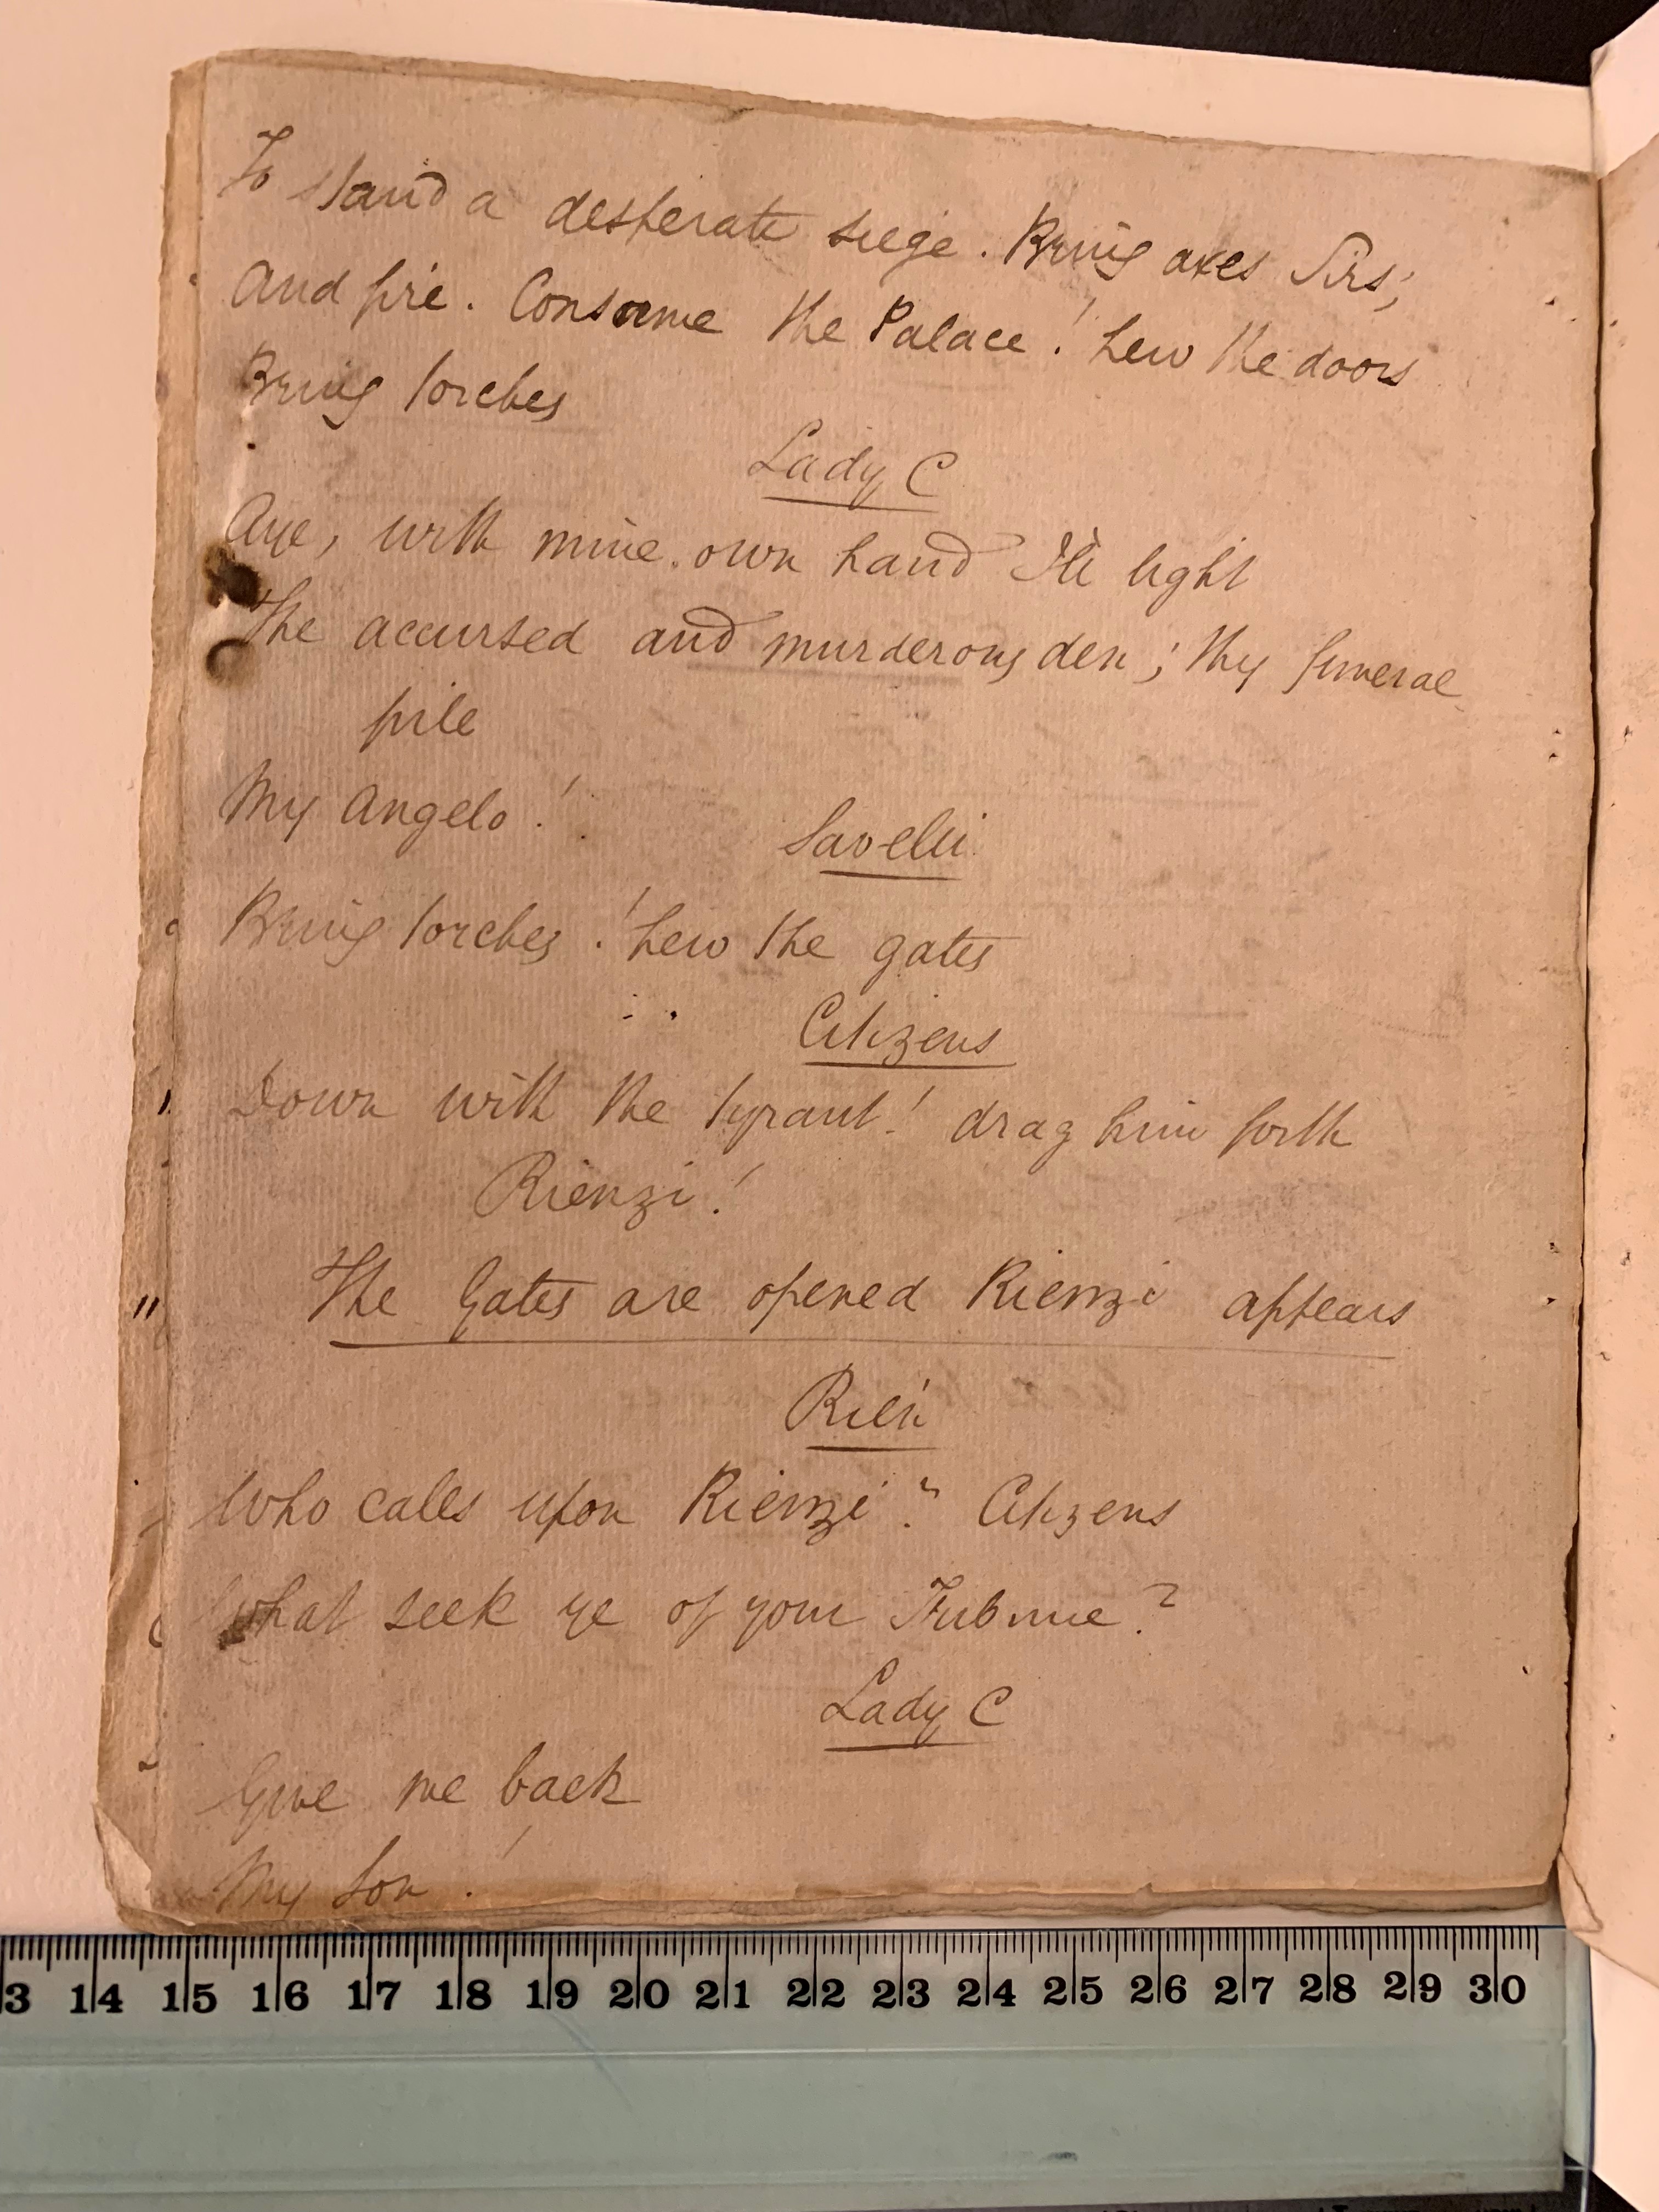 To stand a desperate siege. Bring axes Sirs;
And fire. Consume the Palace! hew the doors
Bring torches
Lady C
Aye, with mine own hand I'll light
The accursed and murderous den; thy funeral
pile
My Angelo!
Savelli
Bring torches! hew the gates
Citizens
Down with the tyrant! drag him forth
Rienzi!
The Gates are opened Rienzi appears
Rien
Who calls upon Rienzi? Citizens
What seek ye of your Tribune?
Lady C
Give me back
My Son!
3 14 15 16 17 18 19 20 21 22 23 24 25 26 27 28 29 30